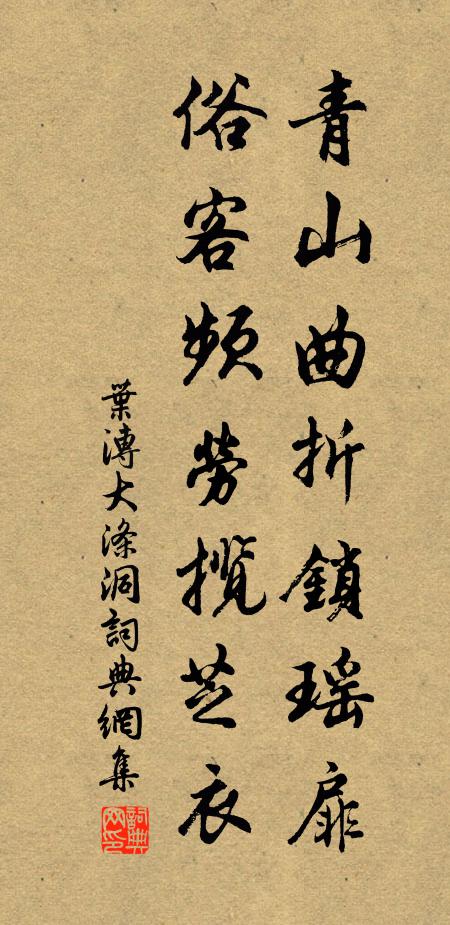 青山曲折鎖瑤扉
俗客頻勞攬芝衣
葉溥大滌洞詞典網集
詞典網印